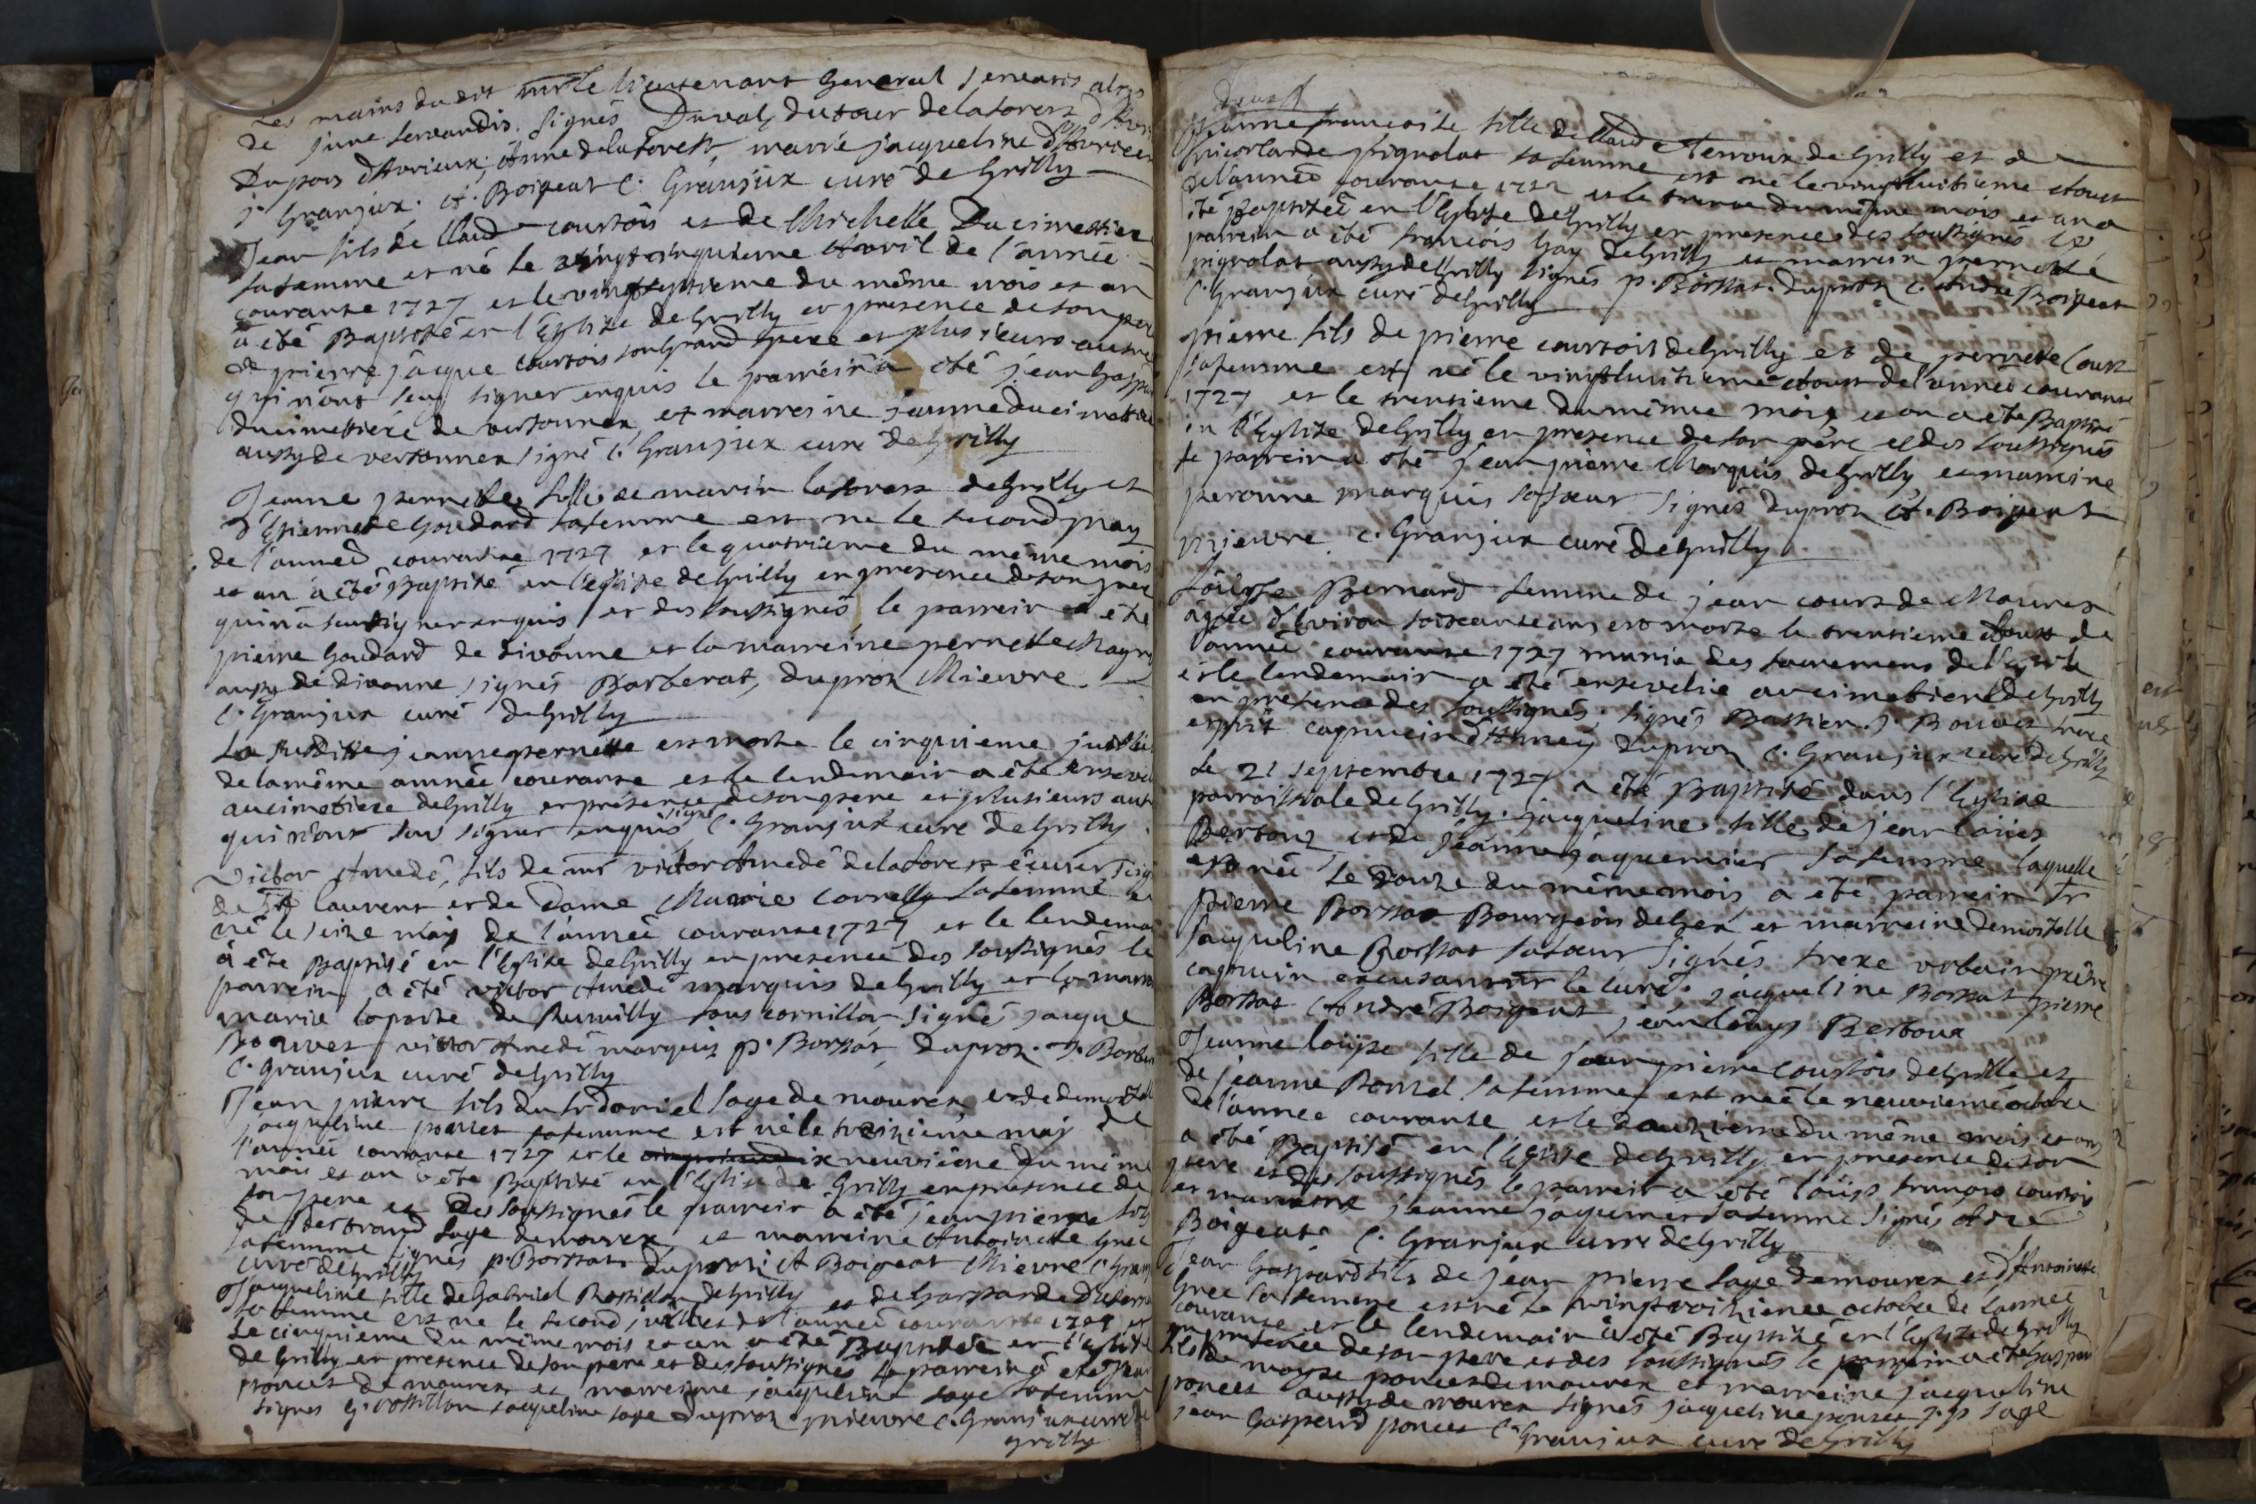 Les mains du dit mr le lieutenant General
De jure servandis. signés Duval, dutour delaforest
Dupars d'Avrieux, Anne delaforest, marie jacqueline
j. Granjux. A. Boigeat C. Granjux curé de Grilly
Jean fils de Claude courtois et de Michelle Ducimettiere
sa femme est né le vingtcinquieme Avril de l'année
courante 1727 et le vingtseptieme du même mois et an
a été Baptisé en l'Eglise de Grilly en presence de son pere
de pierre jaque courtois son Grand pere et plusieurs autres
qui n'ont seu signer enquis le parrein a été jean
ducimettiere de versonnex, et marreine jeanne ducimettiere
aussy de versonnex signé C. Granjux curé de Grilly
Jeanne pernette fille de marin laforest de Grilly et
d'Etiennette Goudard sa femme est né le second may
de l'année courante 1727 et le quatrieme du même mois
et an a été Baptisé en l'eglise de Grilly en presence de son pere
qui n'a seu signer enquis et des soussignés le parrein a été
pierre Goudard de divonne et la marreine pernette
aussy de divonne signés Barberat, dupron Mievre
C. Granjux curé de Grilly
La susditte jeanne pernette est morte le cinquieme juillet
de la même année courante et le lendemain a été enseveli
au cimetiere de Grilly en présence de son pere et plusieurs autres
qui n'ont seu signer enquis signé C. Granjux curé de Grilly
Victor Amedé, fils de mr victor Amedé delaforest écuier
de St laurent et de Dame Marie Cornelly sa femme est
né le seize may de l'année courante 1727 et le lendemain
a été Baptisé en l'Eglise de Grilly en presence des soussignés le
parrein a été victor Amedé marquis de Grilly et la marreine
marie laporte de Rumilly sous cornillon signé jaque
Bouvet victor Amedé marquis p. Borssat, dupron. J.
C. Granjux curé de Grilly
Jean pierre fils du Sr daniel Sage de mourex et de demoiselle
jaqueline poncet sa femme est né le treizieme may de
l'année courante 1727 et le dix neuvieme du même
mois et an a été Baptisé en l'Eglise de Grilly en presence de
son pere et des soussignés le parrein a été jean pierre fils
de Bertrand Sage de mourex et marreine Antoinette
sa femme signés p. Borssat. dupron A Boigeat Mievre C. Granjux
curé de Grilly
Jaqueline fille de Gabriel Rossillon de Grilly et de Gasparde
sa femme est né le second juillet de l'année courante 1727 et
Le cinquieme du même mois et an a été Baptisée en l'Eglise
de Grilly en presence de son pere et des soussignés le parrein a été jean
poncet de mourex et marreine jaqueline sage sa femme
signés G. rossillon jacqueline sage dupron mievre C. Granjux curé de
Grilly
Jeanne francoise fille de Claude Terroux de Grilly et de
pignolat sa femme est né le vingthuitieme Aoust
de l'année courante 1727 et le trente du même mois et an a
été Baptisée en l'Eglise de Grilly en presence des soussignés le
parrein a été francois Gay de Grilly et marrein pernette
pignolat aussy de Grilly signés p. Borssat. dupron C. Andre Boigeat
C. Granjux curé de Grilly
Pierre fils de pierre courtois de Grilly et de pernette Court
sa femme est né le vingthuitieme Aoust de l'année courante
1727 et le trentieme du même mois et an a été Baptisé
en l'Eglise de Grilly en presence de son père et des soussignés
le parrein a été jean pierre Marquis de Grilly et marreine
peronne marquis sa soeur signés dupron A. Boigeat
Mievre. C. Granjux curé de Grilly
Loüise Bernard femme de jean court de Mourex
agée d'Environ soixante ans est morte le trentieme Aoust de
l'année courante 1727 munie des sacremens de l'Eglise
et le lendemain a été ensevelie au cimetiere de Grilly
en presence des soussignés. signés Bastien. J. Bouvet frere
esprit capucin d'Annecy dupron C. Granjux curé de Grilly
Le 21 septembre 1727 a été Baptisé dans l'Eglise
parroissiale de Grilly. jacqueline fille de jean loüis
Bertoux et de jeanne jaquemier sa femme laquelle
est née le douze du même mois a été parrein Sr
Pierre Borssat Bourgeois de Gex et marreine demoiselle
Jacqueline Borssat sa soeur signés frere urbain prêtre
capucin excusant mr le curé. jacqueline Borssat pierre
Borssat André Boigeat jean loüys Bertoux
Jeanne loüyse fille de jean pierre Courtois de Grilly et
de jeanne Bonzel sa femme est née le neuvieme octobre
de l'année courante et le douzieme du même mois et an
a été Baptisé en l'Eglise de Grilly en presence de son
pere et des soussignés le parrein a été loüis francois courtois
et marreine jeanne jaquemier sa femme signés André
Boigeat C. Granjux curé de Grilly
Jean Gaspard fils de jean pierre Sage de mourex et d'Antoinette
sa femme est né le vingttroizieme octobre de l'année
courante et le lendemain a été Baptisé en l'Eglise de Grilly
en presence de son pere et des soussignés le parrein a été Gaspard
fils de moyse poncet de mourex et marreine jacqueline
poncet aussy de mourex signés jacqueline poncet j. p sage
jean Gaspard poncet C. Granjux curé de Grilly